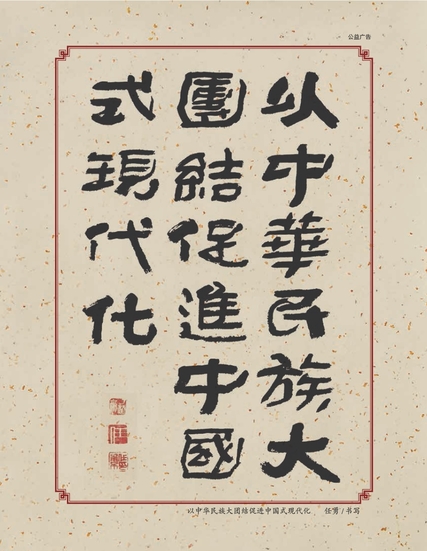 公益广告
以中華民族大
團結促進中國
式現代化
以中华民族大团结促进中国式现代化 任勇/书写